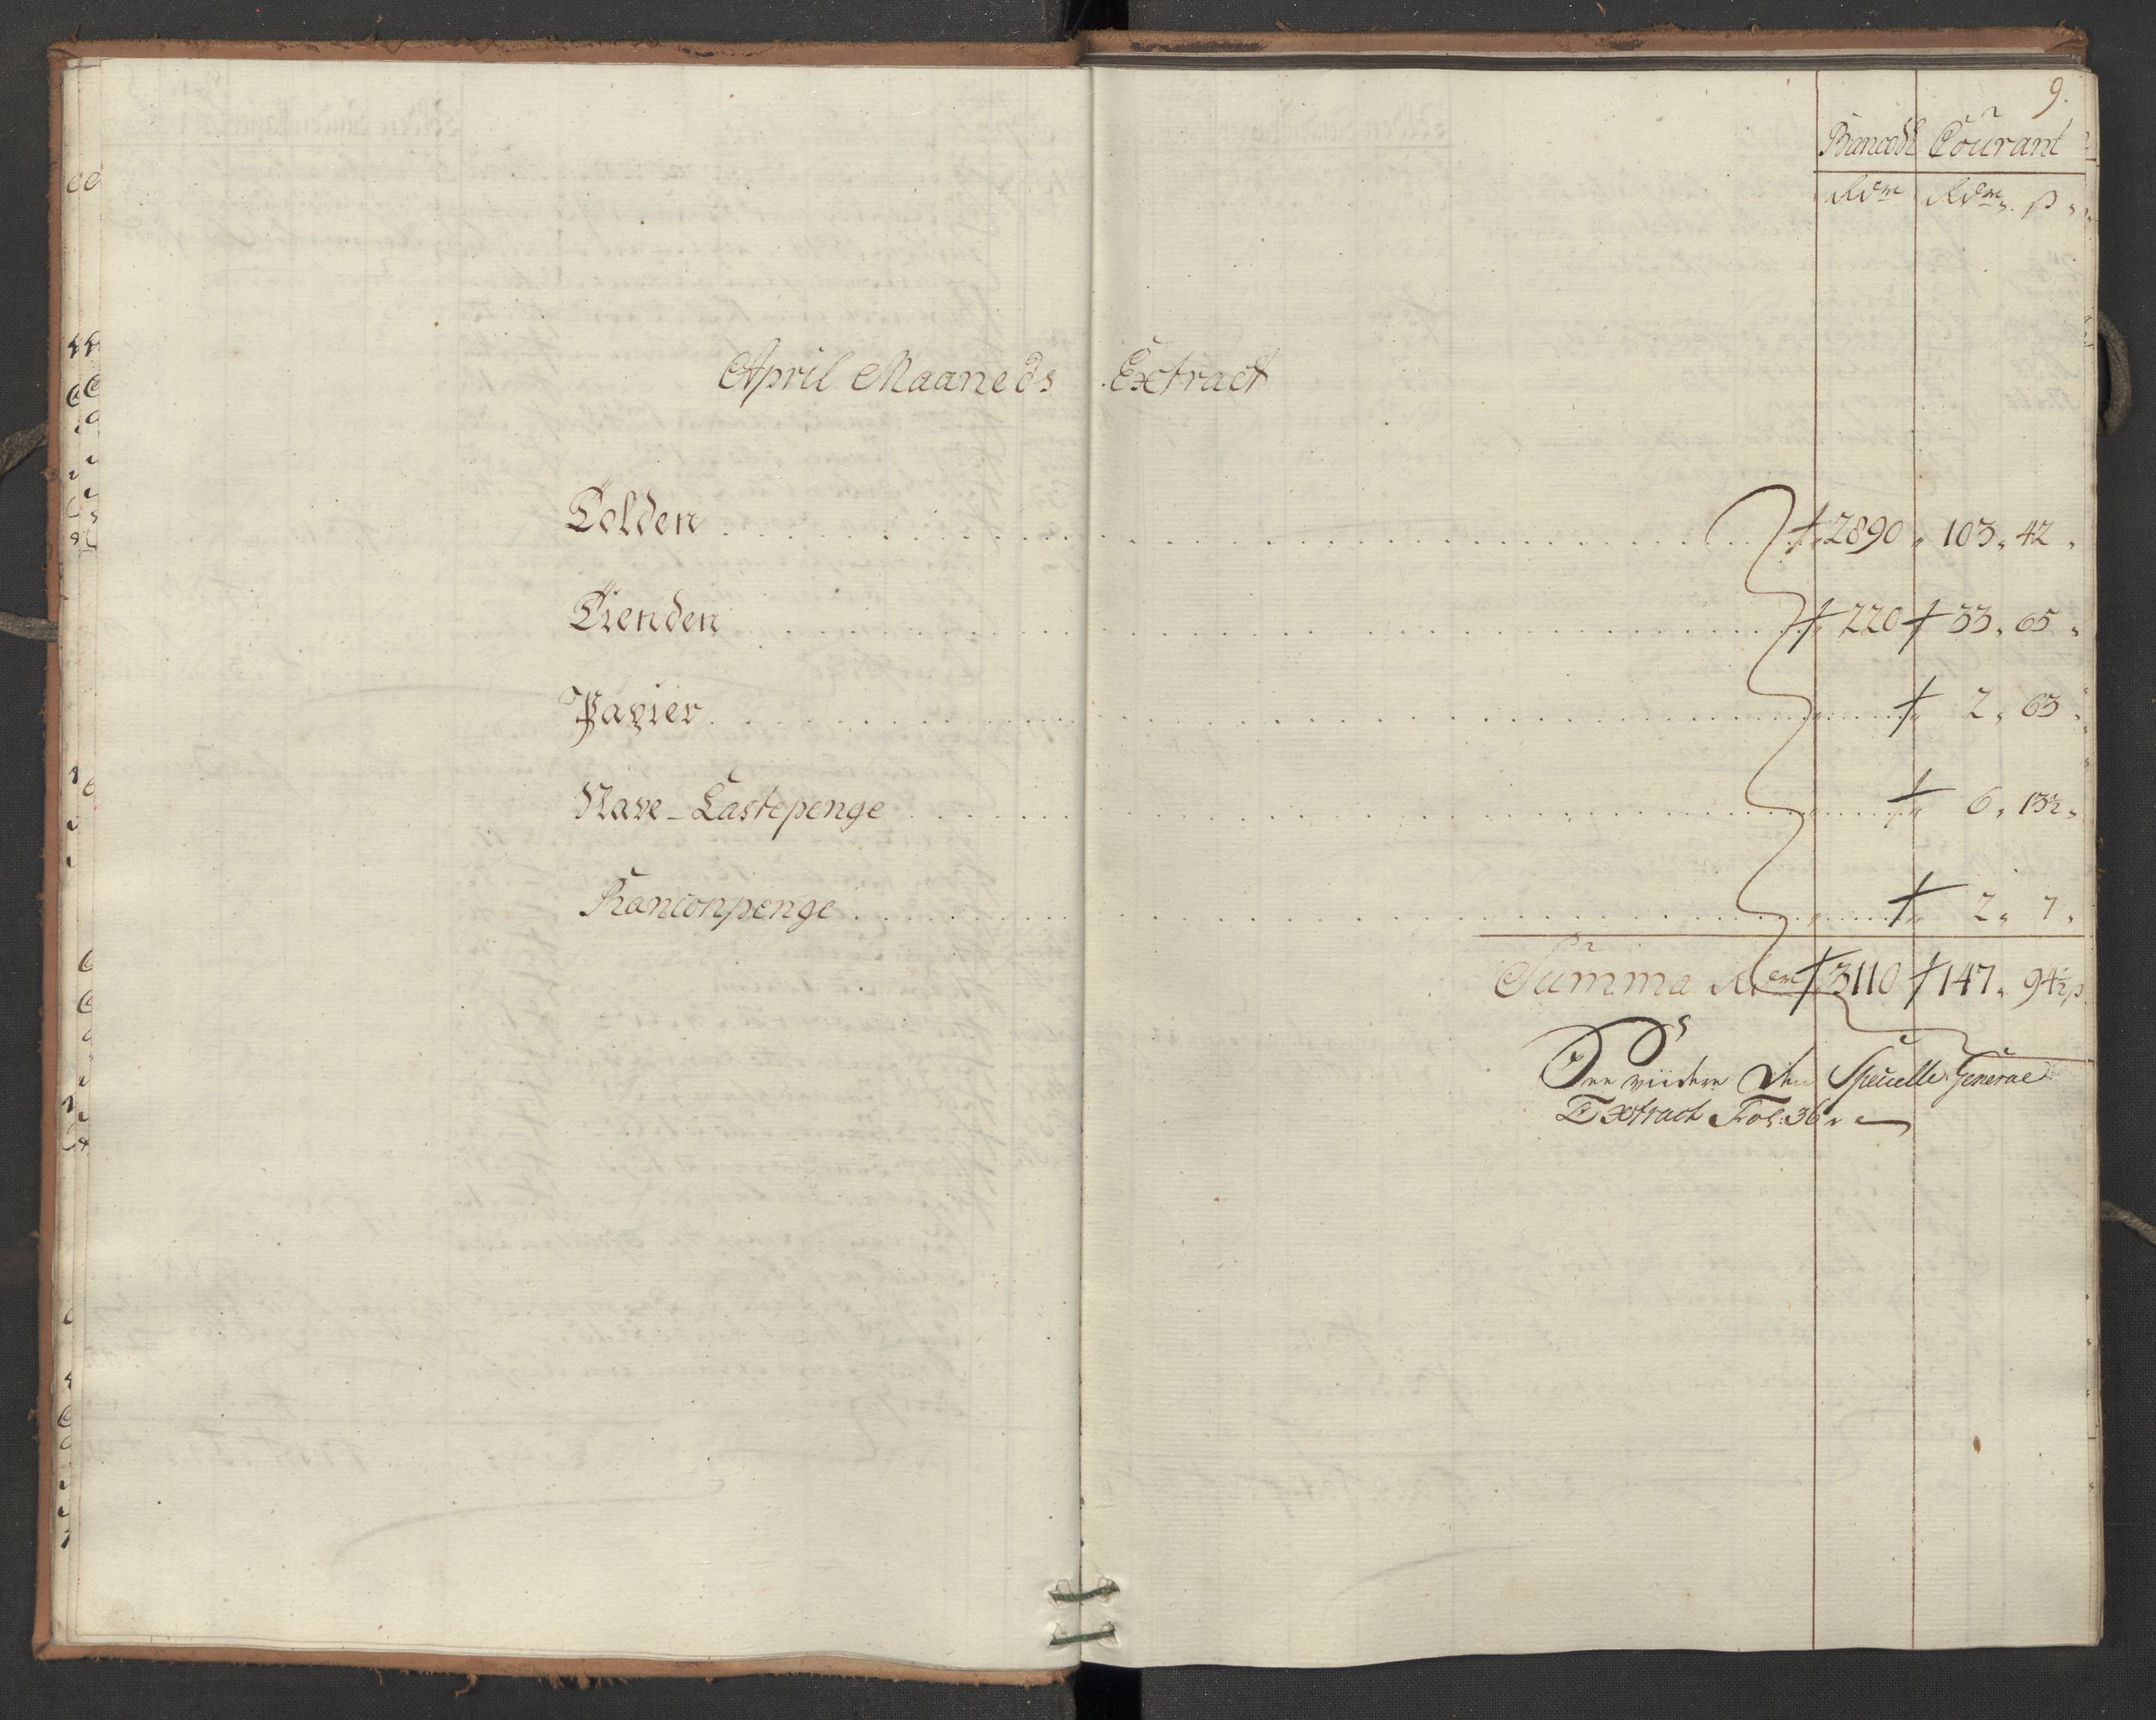 9.
Courant
Rdr Rdr. ß
April Maaneds Extract
Tolden 2890 103 42
Tienden 220 33 65
Papier 2 63
Nave-Lastepenge 6 13½
Ranconpenge 2 7
Summa Rdr 3110 147 94½ ß
See viidere den Speuelle General
Extract Fol: 36